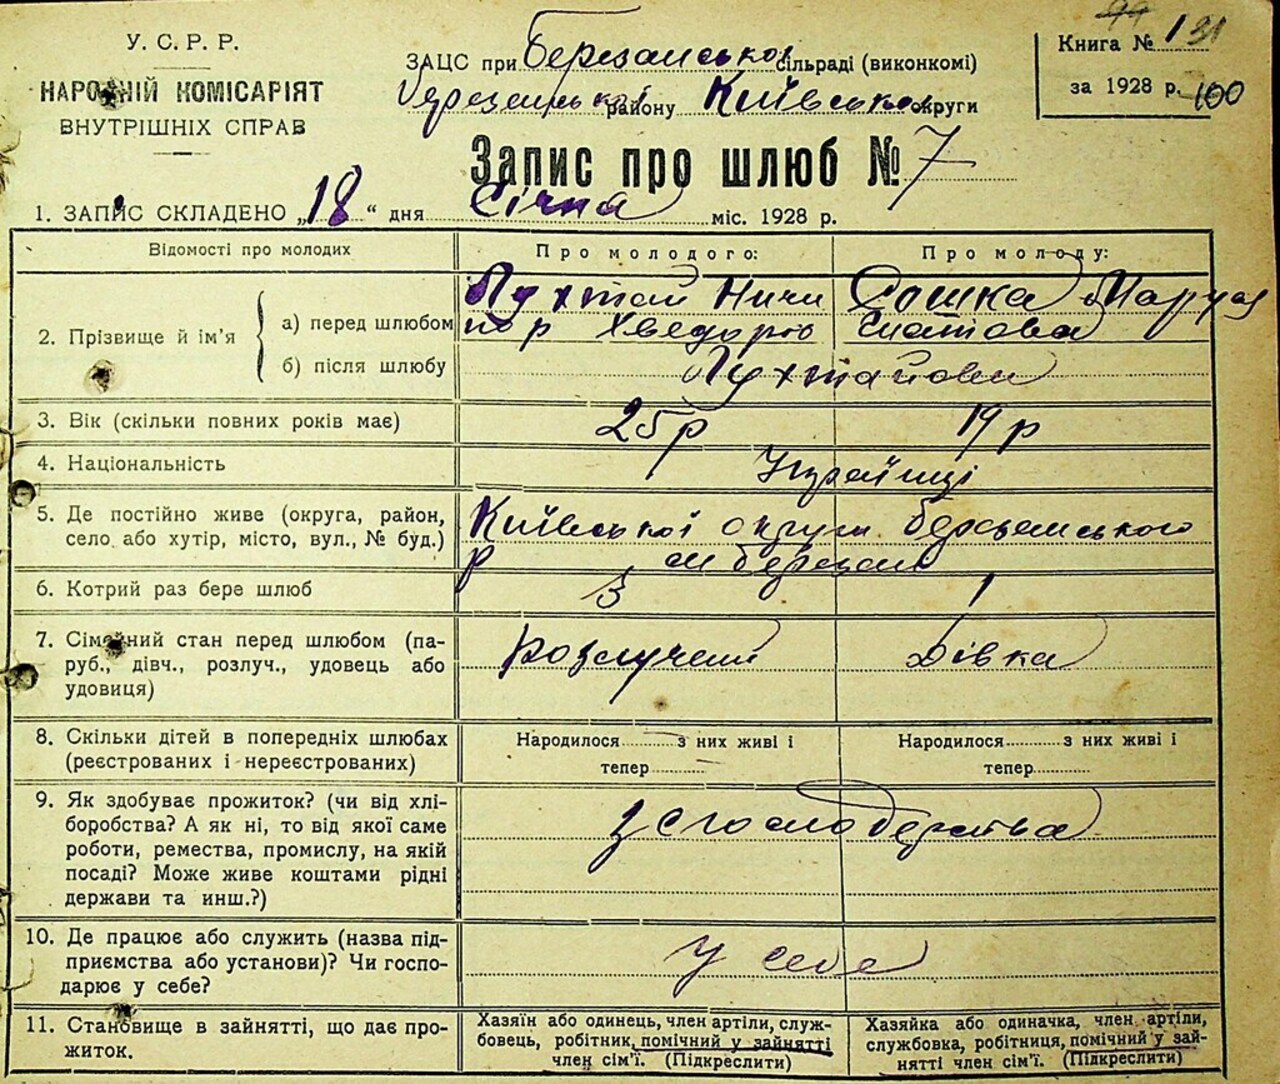 У. С. Р. Р.
НАРОДНІЙ КОМІСАРІЯТ
ВНУТРІШНІХ СПРАВ
ЗАЦС при Березанської сільраді (виконкомі)
району Київської округи
Книга № 1 31
за 1928 р. 100
Запис про шлюб № 7
1. ЗАПИС СКЛАДЕНО „18“ дня Січня міс. 1928 р.
Відомості про молодих
Про молодого:
Про молоду:
2. Прізвище й ім'я
а) перед шлюбом
б) після шлюбу
Лухтай Ничи
пор Хведорю
Сошка Маруся
Лухтайови
3. Вік (скільки повних років має)
25р
19р
4. Національність
Українці
5. Де постійно живе (округа, район,
село або хутір, місто, вул., № буд.)
Київської округи Березанського
р м Березань
6. Котрий раз бере шлюб
3
1
7. Сімейний стан перед шлюбом (па-
руб., дівч., розлуч., удовець або
удовиця)
розлучений
дівка
8. Скільки дітей в попередніх шлюбах
(реєстрованих і нереєстрованих)
Народилося з них живі і
тепер
Народилося з них живі і
тепер
9. Як здобуває прожиток? (чи від хлі-
боробства? А як ні, то від якої саме
роботи, ремества, промислу, на якій
посаді? Може живе коштами рідні
держави та инш.?)
10. Де працює або служить (назва під-
приємства або установи)? Чи госпо-
дарює у себе?
у себе
11. Становище в зайнятті, що дає про-
житок.
Хазяїн або одинець, член артіли, служ-
бовець, робітник, помічний у зайнятті
член сім'ї. (Підкреслити)
Хазяйка або одиначка, член артіли,
службовка, робітниця, помічний у зай-
нятті член сім'ї. (Підкреслити)